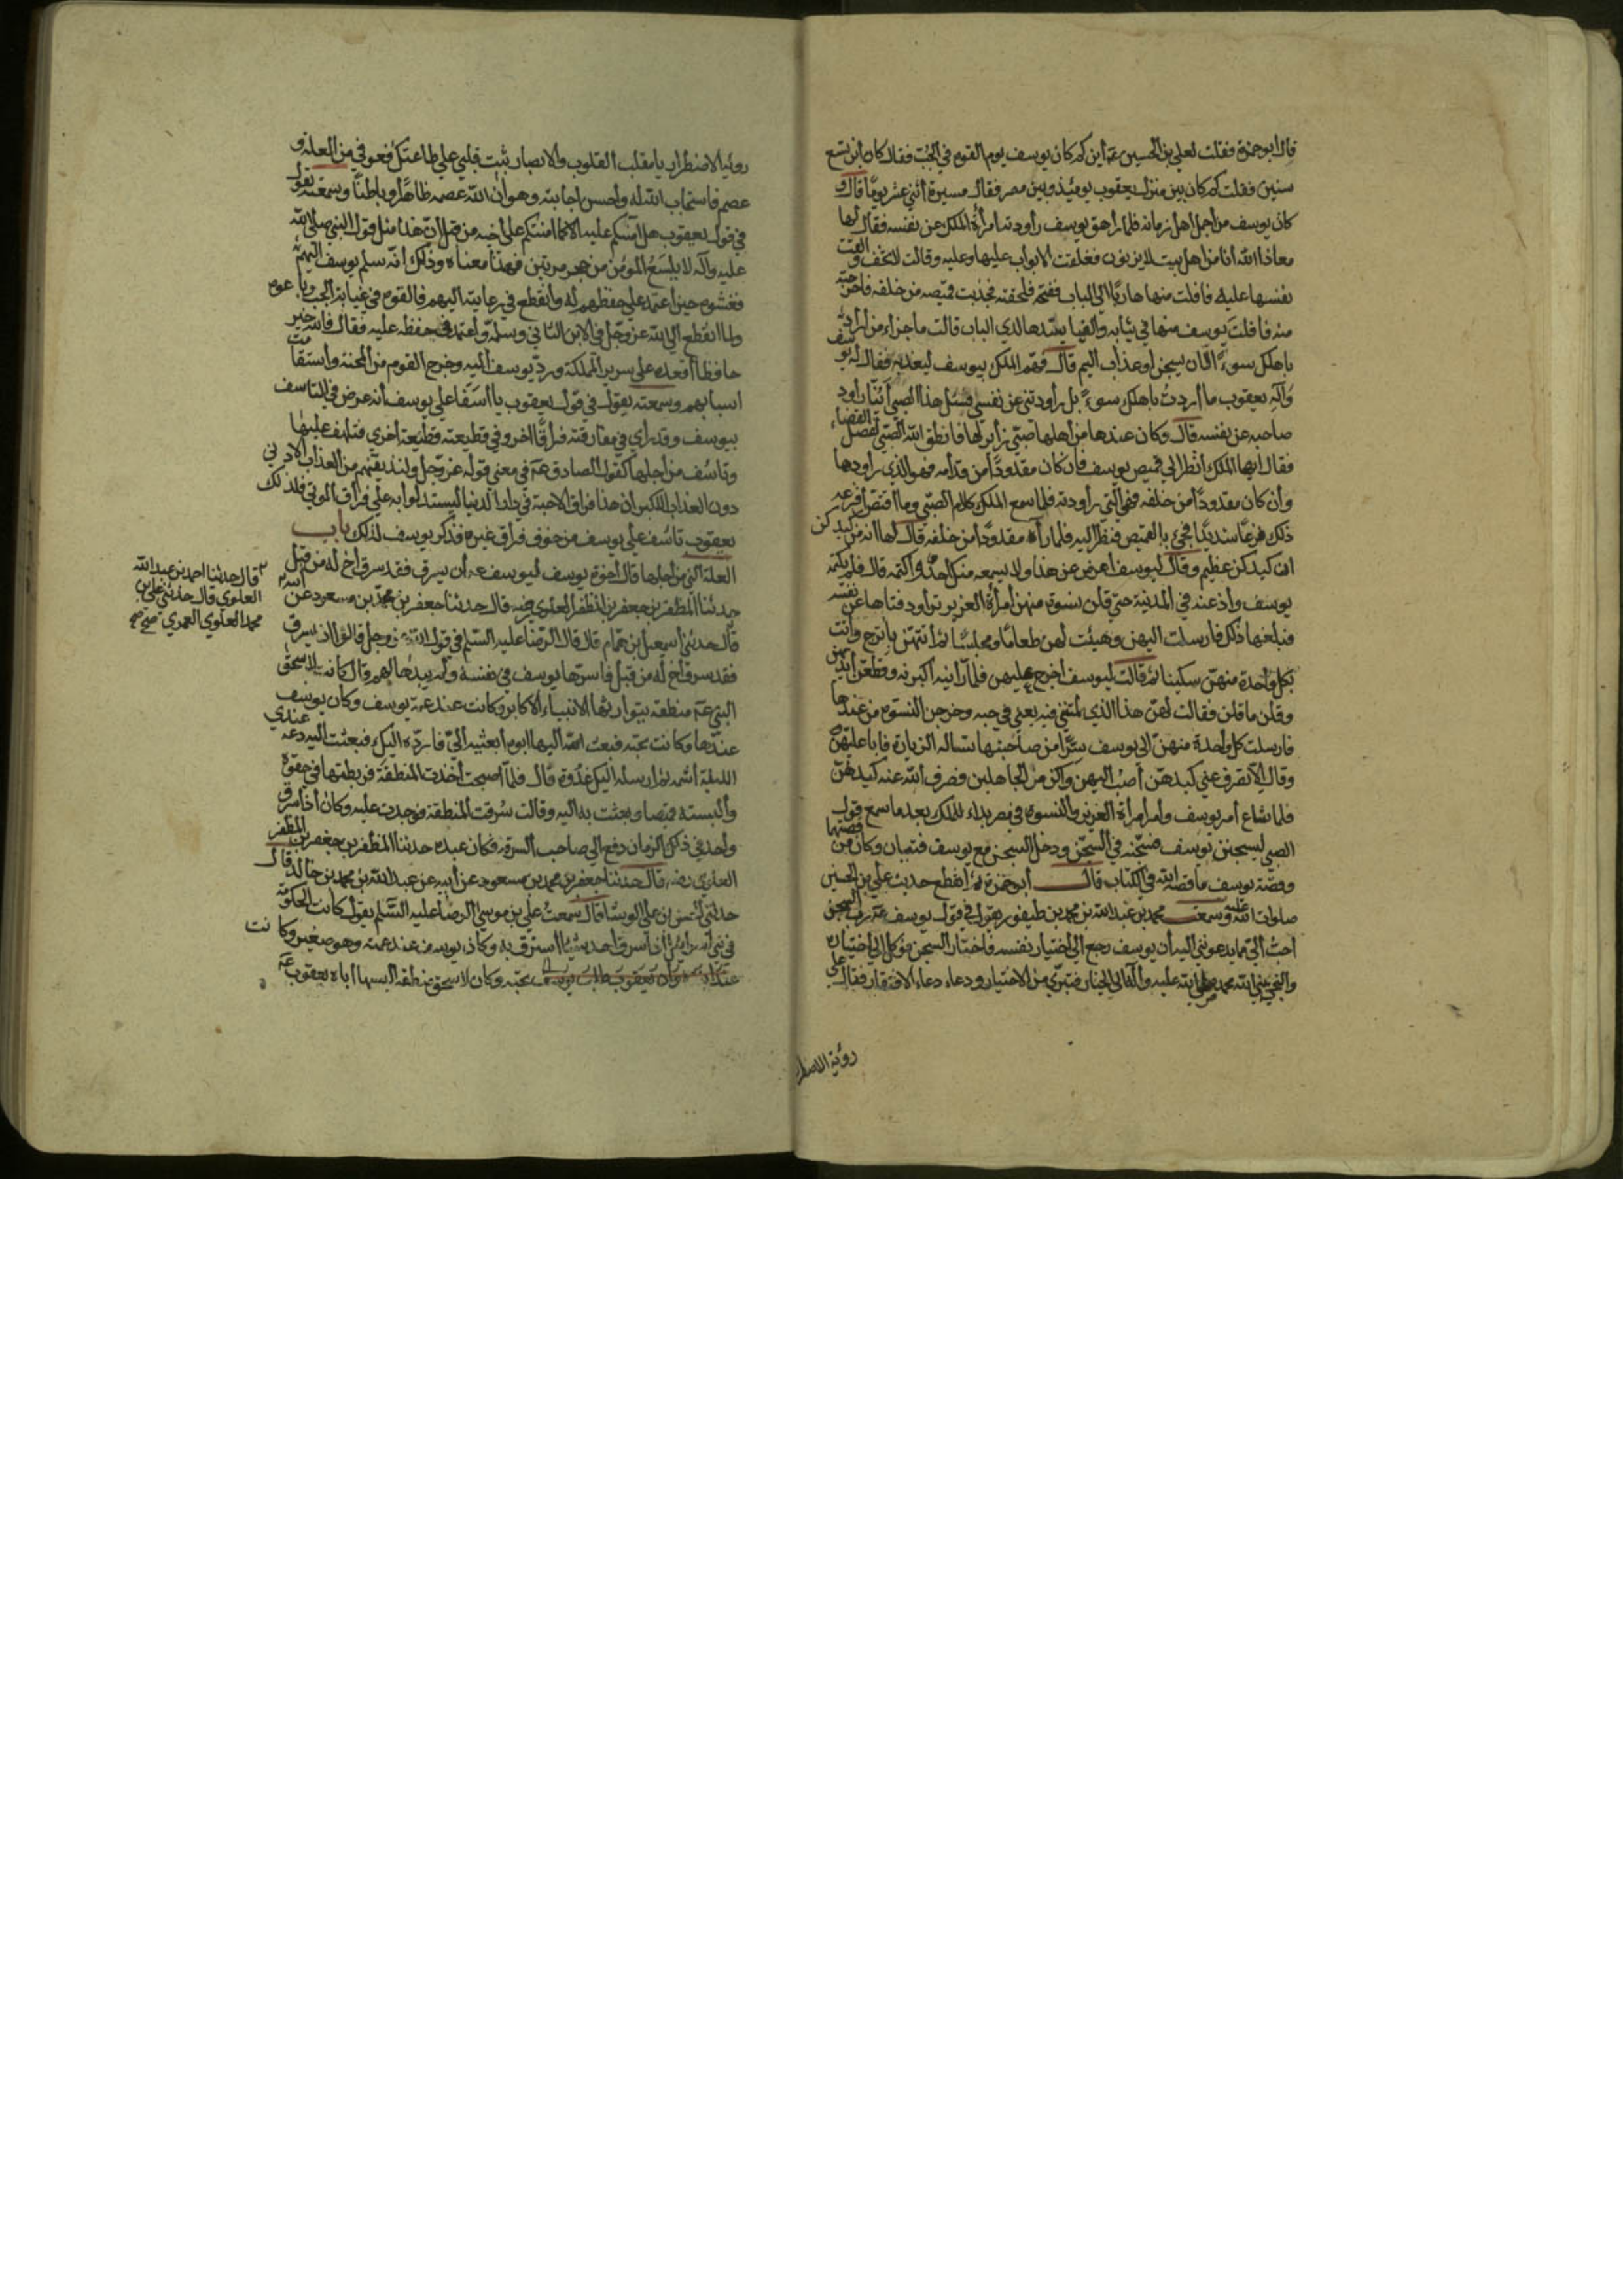 قال ابو حمزة فقلت لعلي بن الحسين عم ابن كم كان يوسف يوم القوه في الجب فقال كان ابن تسع
سنين فقلت كم كان بين منزل يعقوب يومئذ وبين مصر فقال مسيرة اثني عشر يوما قال و
كان يوسف من اجمل اهل زمانه فلما راهق يوسف راودته امرأة الملك عن نفسه فقال لها
معاذ الله انا من اهل بيت لا يزنون فغلقت الابواب عليها وعليه وقالت لا تخف والقت
نفسها عليه فافلت منها هاربا الي الباب ففتحه فلحقته فجذبت قميصه من خلفه فاخرجته
منه فافلت يوسف منها في ثيابه والفيا سيدها لدي الباب قالت ما جزاء من اراد
باهلك سوءً الا ان يسجن او عذاب اليم قال فهم الملك بيوسف ليعذبه فقال له يوسف
واله يعقوب ما اردت باهلك سوءً بل راودتني عن نفسي فسئل هذا الصبي اينا راود
صاحبه عن نفسه قال وكان عندها من اهلها صبي زائر لها فانطق الله الصبي لفصل القضاء
فقال ايها الملك انظر الي قميص يوسف فان كان مقدودا من قدامه فهو الذي راودها
وان كان مقدودا من خلفه فهي التي راودته فلما سمع الملك كلام الصبي وما اقتص افزعه
ذلك فزعا شديدا فجيء بالقميص فنظر اليه فلما رآه مقدودا من خلفه قال لها انه من كيدكن
ان كيدكن عظيم وقال ليوسف اعرض عن هذا ولا يسمعه منك احد واكتمه قال فلم يكتمه
يوسف واذاعه في المدينة حتي قلن نسوة منهن امرأة العزيز تراود فتاها عن نفسه
فبلغها ذلك فارسلت اليهن وهيئت لهن طعاما ومجلسا ثم اتتهن باترج وآتت
بكل واحدة منهن سكينا ثم قالت ليوسف اخرج عليهن فلما راينه اكبرنه وقطعن ايديهن
وقلن ما قلن فقالت لهن هذا الذي لمتنني فيه يعني في حبه وخرجن النسوة من عندها
فارسلت كل واحدة منهن الي يوسف سرا من صاحبتها تساله الزيارة فابا عليهن
وقال الا تصرف عني كيدهن اصب اليهن واكن من الجاهلين فصرف الله عنه كيدهن
فلما شاع امر يوسف وامر امرأة العزيز والنسوة في مصر بداء للملك بعد ما سمع قول
الصبي ليسجنن يوسف فسجنه في السجن ودخل السجن مع يوسف فتيان وكان من قصتهما
وقصة يوسف ما قصه الله في الكتاب قال ابو حمزة ثم انقطع حديث علي بن الحسين
صلوات الله عليه وسمعت محمد بن عبد الله بن محمد بن طيفور يقول في قول يوسف عم رب السجن
احب الي مما يدعونني اليه ان يوسف رجع الي اختيار نفسه فاختار السجن فوكل الي اختياره
والتجي نبي الله محمد صلي الله عليه وآله الي الخيار فتبري من الاختيار ودعاء دعاء الافتقار فقال علي
رؤية الاضطر
رؤية الاضطرار يا مقلب القلوب والابصار ثبت قلبي علي طاعتك فعوفي من العلة و
عصم فاستجاب الله له واحسن اجابته وهو ان الله عصمه ظاهرا وباطنا وسمعته يقول
في قول يعقوب هل آمنكم عليه الا كما امنتكم علي اخيه من قبل ان هذا مثل قول النبي صلي الله
عليه وآله لا يلسع المؤمن من جحر مرتين فهذا معناه وذلك انه سلم يوسف اليهم
فغشوه حين اعتمد علي حفظهم له وانقطع في رعايته اليهم فالقوه في غيابة الجب وباعوه
ولما انقطع الي الله عز وجل في الابن الثاني وسلمه واعتمد في حفظه عليه فقال فالله خير
حافظا اقعده علي سرير المملكة ورد يوسف اليه وخرج القوم من المحنة واستقامت
اسبابهم وسمعته يقول في قول يعقوب يا اسفا علي يوسف انه عرض في التاسف
بيوسف وقد راي في مفارقته فراقا اخر وفي قطيعته قطيعة اخري فتلهف عليها
وتاسف من اجلها كقول الصادق عم في معني قوله عز وجل ولنذيقنهم من العذاب الادني
دون العذاب الاكبر ان هذا فراق الاحبة في دار الدنيا ليستدلوا به علي فراق المولي فلذلك
يعقوب تاسف علي يوسف من خوف فراق غيره فذكر يوسف لذلك باب
العلة التي من اجلها قال اخوة يوسف ليوسف عم ان يسرق فقد سرق اخ له من قبل
حدثنا المظفر بن جعفر بن المظفر العلوي رضه قال حدثنا جعفر بن محمد بن مسعود عن ابيه
قال حدثني اسمعيل بن همام قال قال الرضا عليه السلم في قول الله عز وجل قالوا ان يسرق
فقد سرق اخ له من قبل فاسرها يوسف في نفسه ولم يبدها لهم قال كانت لاسحق
النبي عم منطقة يتوارثها الانبياء الاكابر وكانت عند عمة يوسف وكان يوسف
عندها وكانت تحبه فبعث اليها ابوه ابعثيه الي فارده اليك فبعثت اليه دعه عندي
الليلة اشمه ثم ارسله اليك غدوة قال فلما اصبحت اخذت المنطقة فربطتها في حقوه
والبسته قميصا وبعثت به اليه وقالت سرقت المنطقة فوجدت عليه وكان اذا سرق
واحد في ذلك الزمان دفع الي صاحب السرقة فكان عبده حدثنا المظفر بن جعفر بن المظفر
العلوي رضه قال حدثنا جعفر بن محمد بن مسعود عن ابيه عن عبد الله بن محمد بن خالد قال
حدثني الحسن بن علي الوشا قال سمعت علي بن موسي الرضا عليه السلم يقول كانت الحكومة
في بني اسرائيل اذا سرق احد شيئا استرق به وكان يوسف عند عمته وهو صغير وكانت
تحبه وكان لاسحق منطقة البسها اباه يعقوب عم
قال حدثنا احمد بن عبد الله
العلوي قال حدثني علي بن
محمد العلوي العمري صح